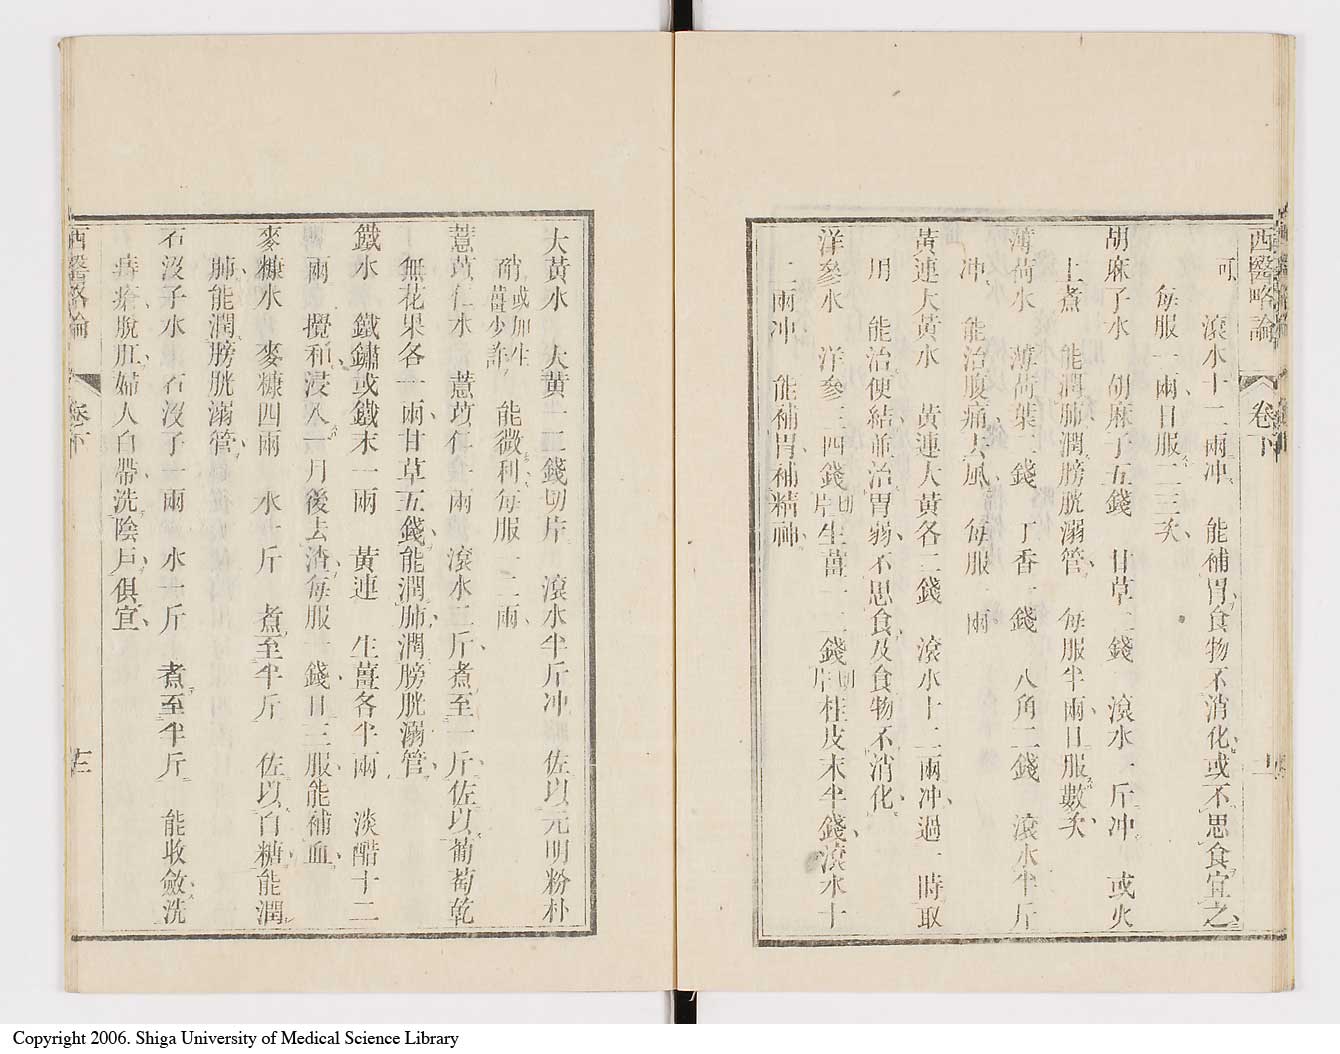 西醫略論 卷下
可 滾水十二兩冲 能補胃食物不消化或不思食宜之
每服一兩日服二三次
胡麻子水 胡麻子五錢 甘草二錢 滾水一斤冲 或火
上煮 能潤肺潤膀胱溺管 每服半兩日服數次
薄荷水 薄荷葉二錢 丁香一錢 八角二錢 滾水半斤
冲 能治腹痛去風 每服一兩
黃連大黃水 黃連大黃各二錢 滾水十二兩冲過一時取
用 能治便結並治胃弱不思食及食物不消化
洋參水 洋參三四錢切片生薑一二錢切片桂皮末半錢滾水十
二兩冲 能補胃補精神
大黃水 大黃一二錢切片 滾水半斤冲 佐以元明粉朴
硝或加生薑少許 能微利每服一二兩
薏苡仁水 薏苡仁一兩 滾水三斤煮至一斤佐以葡萄乾
無花果各一兩甘草五錢能潤肺潤膀胱溺管
鐵水 鐵鏽或鐵末一兩 黃連 生薑各半兩 淡醋十二
兩 攪和浸入一月後去渣每服一錢日三服能補血
麥糠水 麥糠四兩 水十斤 煮至半斤 佐以白糖能潤
肺能潤膀胱溺管
石沒子水 石沒子一兩 水十斤 煮至半斤 能收斂洗
痔瘡脫肛婦人白帶洗陰戶俱宜
西醫略論 卷下 十三
Copyright 2006. Shiga University of Medical Science Library